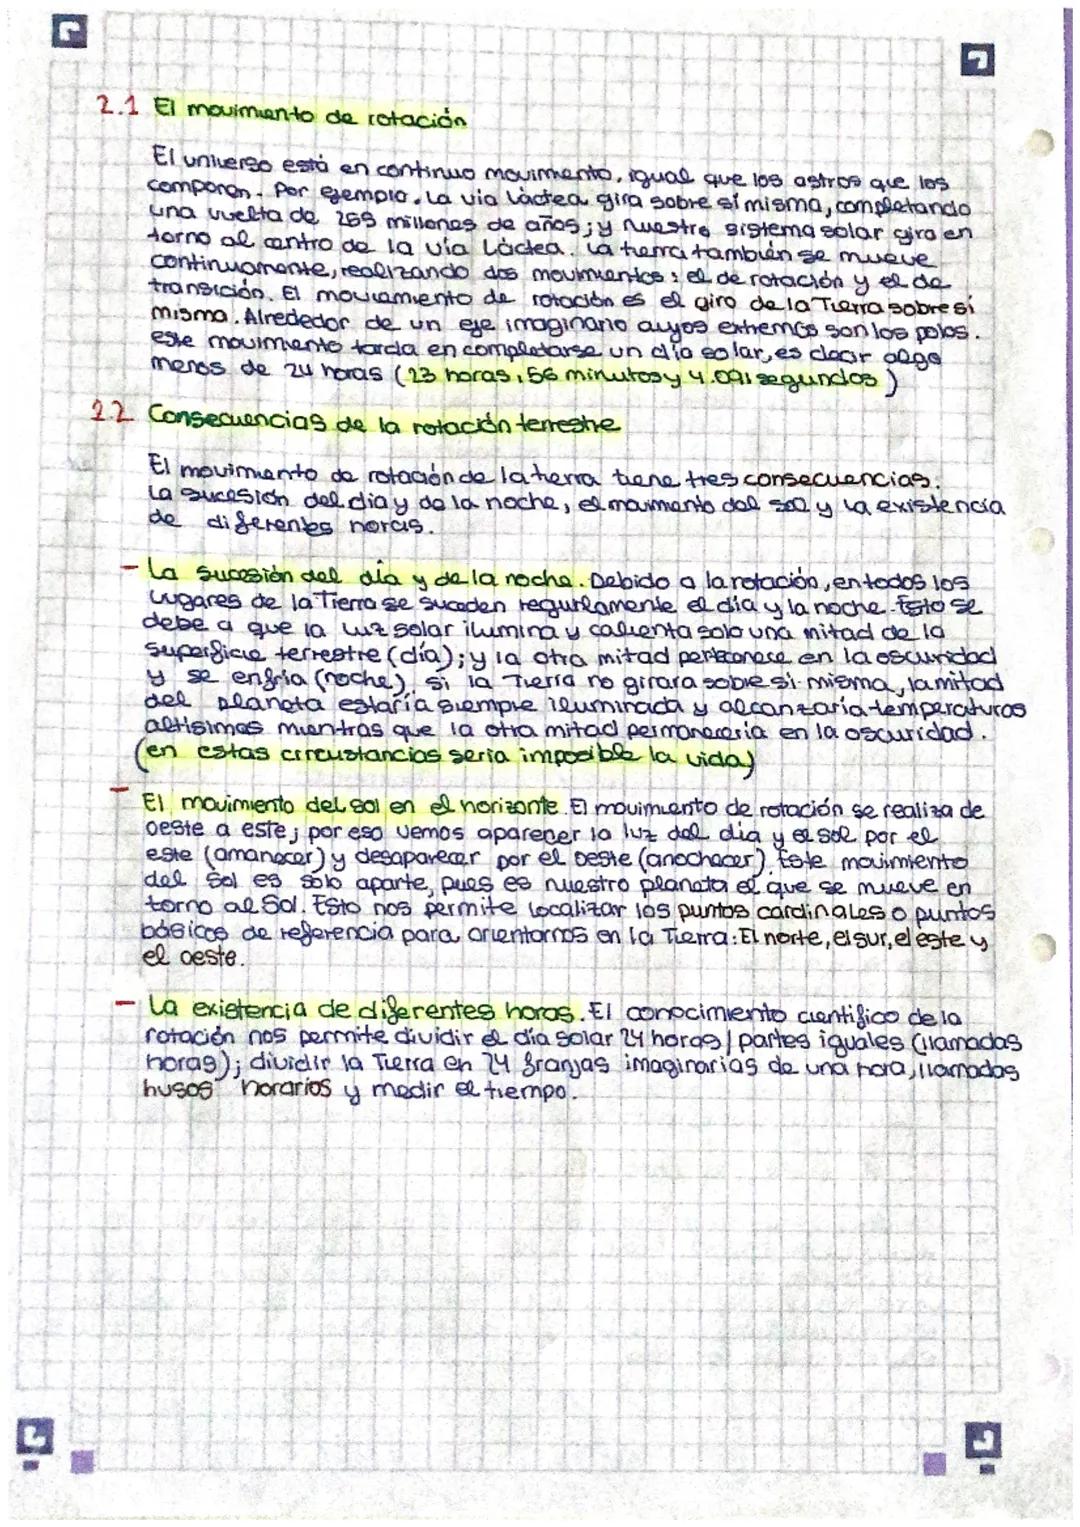 2.1 El movimiento de rotación
El universo está en continuo movimiento, igual que los astros que los
componen. Por ejemplo. La vía Láctea gira sobre sí misma, completando
una vuelta de 259 millones de años; y nuestro sistema solar gira en
torno al centro de la vía Láctea. La tierra también se mueve
continuamente, realizando dos movimientos: el de rotación y el de
transición. El movimiento de rotación es el giro de la Tierra sobre sí
misma. Alrededor de un eje imaginario cuyos extremos son los polos.
este movimiento tarda en completarse un día solar, es decir algo
menos de 24 horas (23 horas, 56 minutos y 4.091 segundos)
2.2 Consecuencias de la rotación terrestre
El movimiento de rotación de la tierra tiene tres consecuencias:
La sucesión del día y de la noche, el movimiento del sol y la existencia
de diferentes horas.
- La sucesión del día y de la noche. Debido a la rotación, en todos los
lugares de la Tierra se suceden regurlamente el día y la noche. Esto se
debe a que la luz solar ilumina y calienta solo una mitad de la
superficie terrestre (día); y la otra mitad permanece en la oscuridad
y se enfría (noche), si la Tierra no girara sobre si misma, la mitad
del planeta estaría siempre iluminada y alcanzaría temperaturas
altísimas mientras que la otra mitad permanecería en la oscuridad.
(en estas circustancias seria imposible la vida)
- El movimiento del sol en el horizonte. El movimiento de rotación se realiza de
oeste a este; por eso vemos aparecer la luz del día y el sol por el
este (amanecer) y desaparecer por el oeste (anochecer). Este movimiento
del Sol es solo aparte, pues es nuestro planeta el que se mueve en
torno al Sol. Esto nos permite localizar los puntos cardinales o puntos
básicos de referencia para orientarnos en la Tierra: El norte, el sur, el este y
el oeste.
- La existencia de diferentes horas. El conocimiento científico de la
rotación nos permite dividir el día solar 24 horas / partes iguales (llamadas
horas); dividir la Tierra en 24 franjas imaginarias de una hora, llamadas
husos horarios y medir el tiempo.